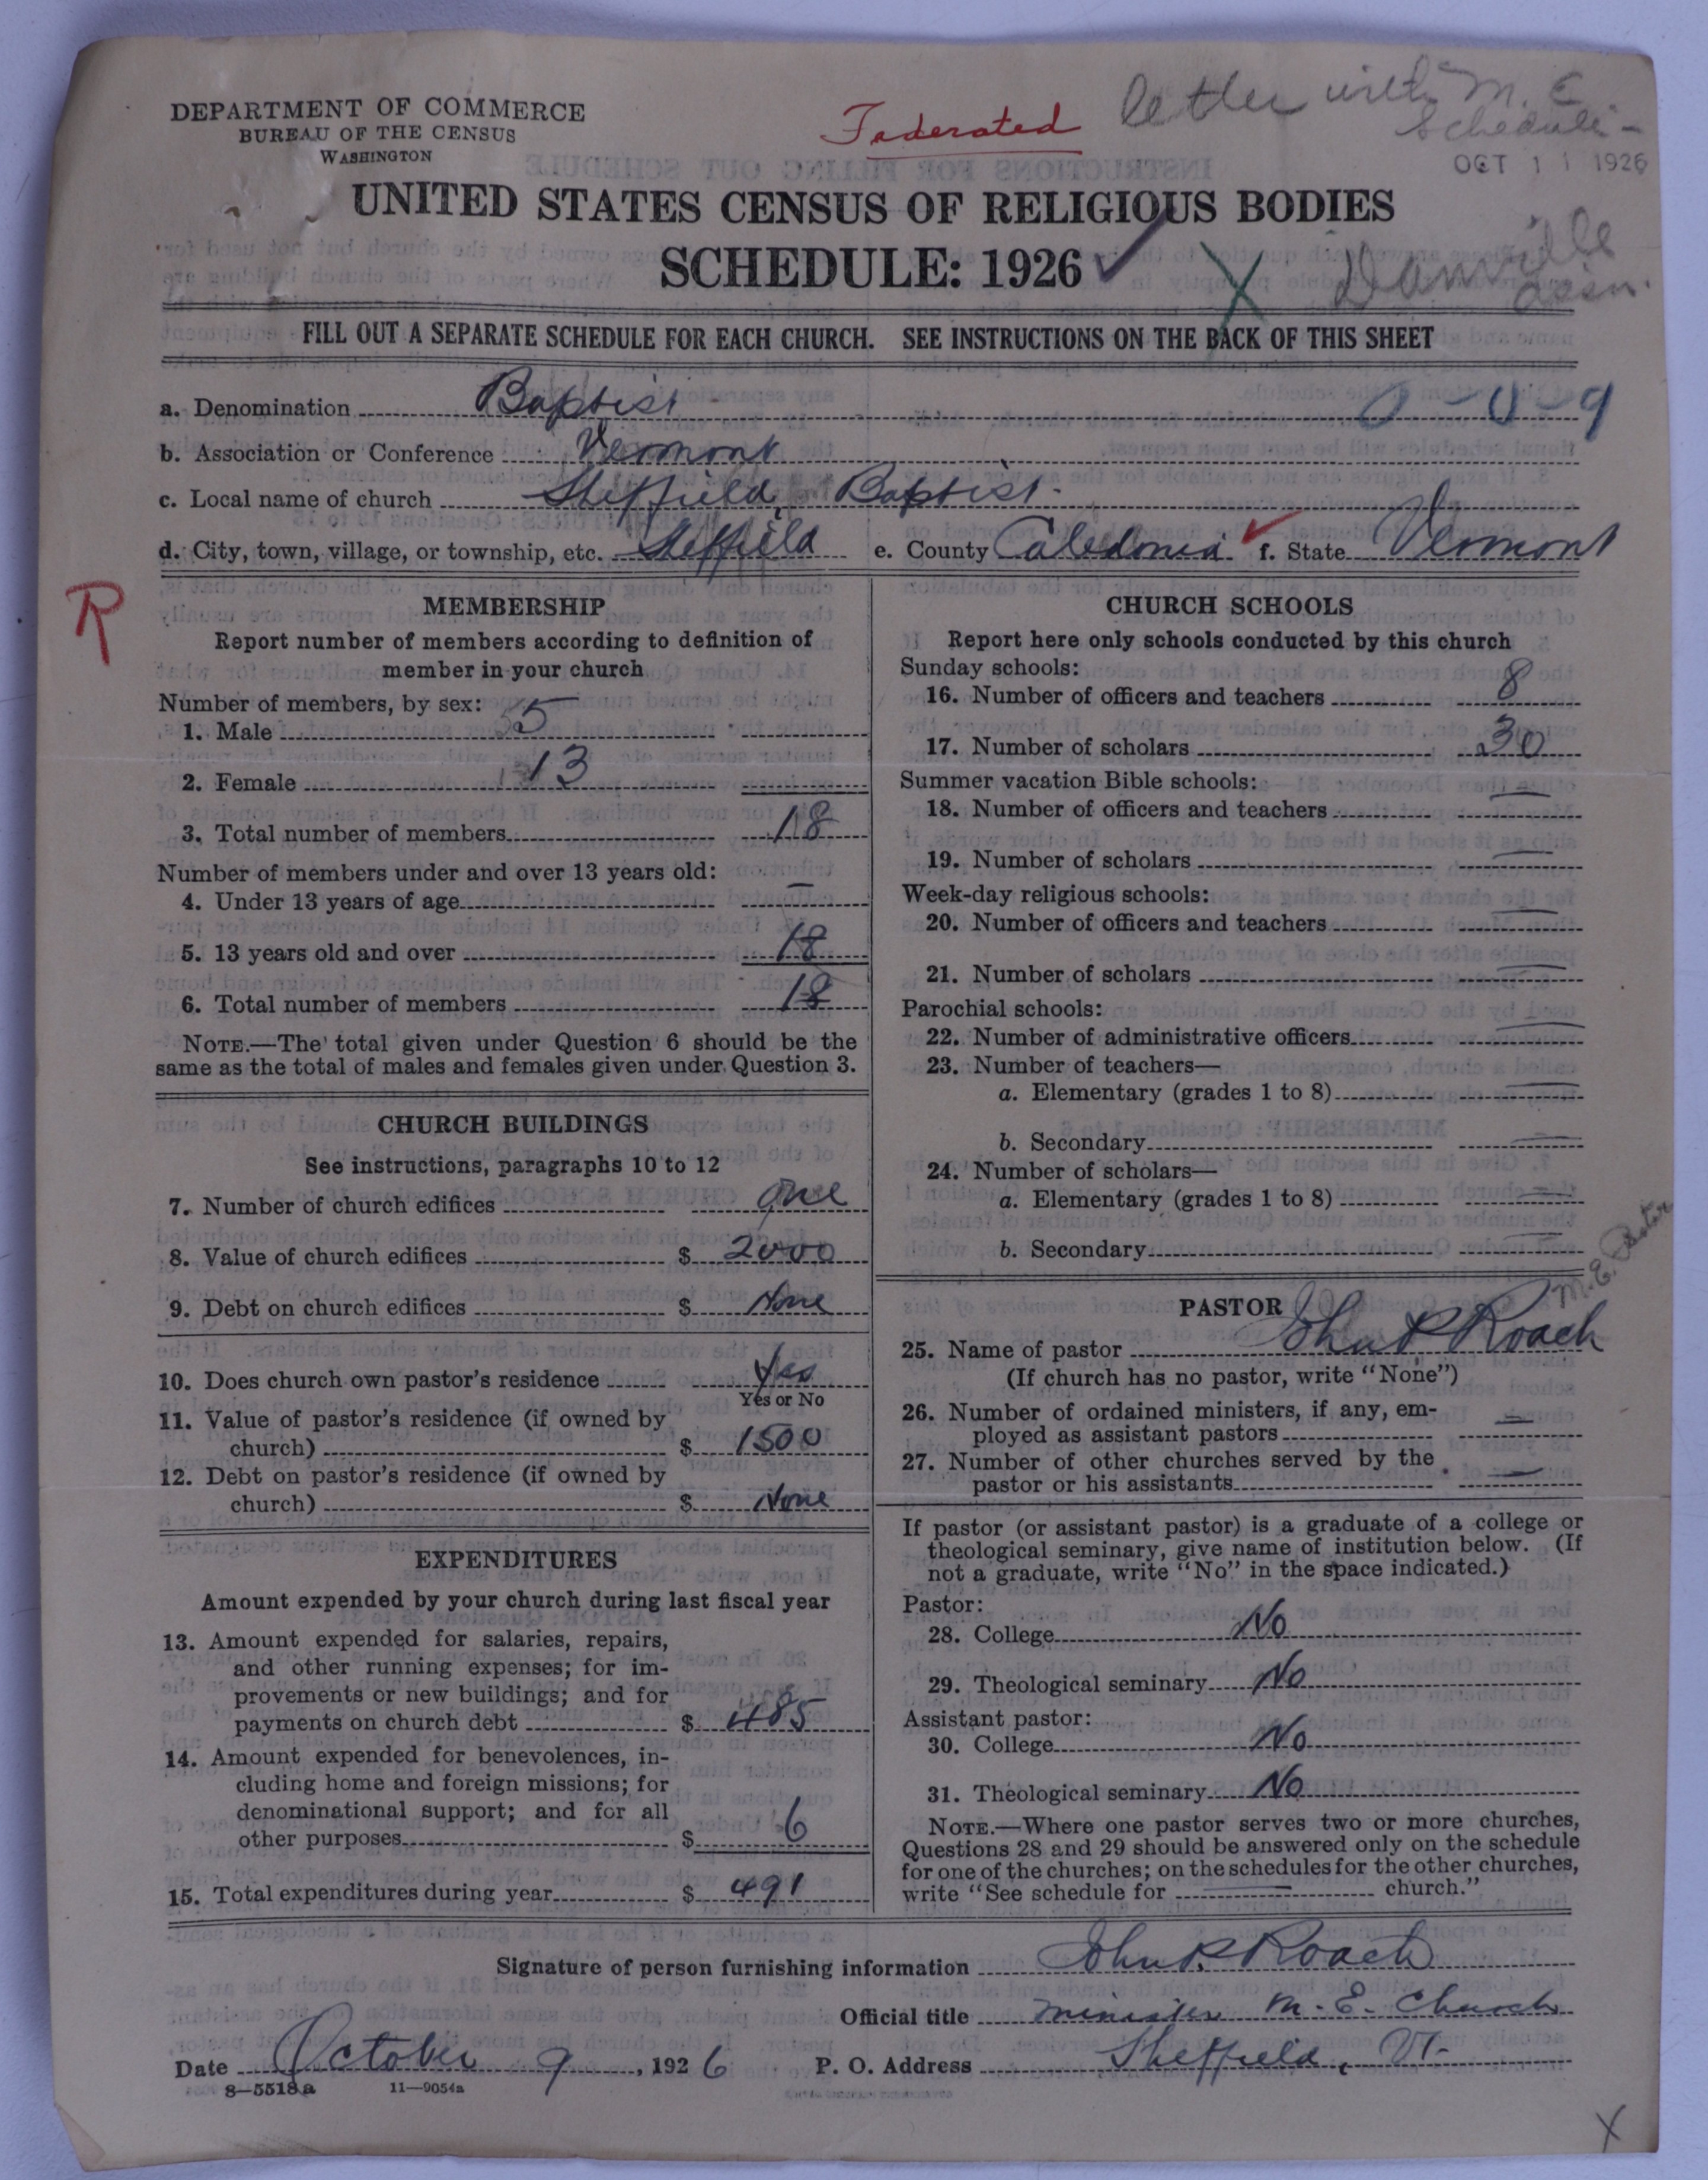 DEPARTMENT OF COMMERCE
BUREAU OF THE CENSUS
WASHINGTON
Federated
letter with M. E.
Schedule -
OCT 11 1926
UNITED STATES CENSUS OF RELIGIOUS BODIES
SCHEDULE: 1926
Danville
assn.
FILL OUT A SEPARATE SCHEDULE FOR EACH CHURCH. SEE INSTRUCTIONS ON THE BACK OF THIS SHEET
a. Denomination Baptist 0-0-9
b. Association or Conference Vermont
c. Local name of church Sheffield, Baptist.
d. City, town, village, or township, etc. Sheffield e. County Caledonia f. State Vermont
R
MEMBERSHIP
Report number of members according to definition of
member in your church
Number of members, by sex:
1. Male 5
2. Female 13
3. Total number of members 18
Number of members under and over 13 years old:
4. Under 13 years of age —
5. 13 years old and over 18
6. Total number of members 18
NOTE.—The total given under Question 6 should be the
same as the total of males and females given under Question 3.
CHURCH BUILDINGS
See instructions, paragraphs 10 to 12
7. Number of church edifices one
8. Value of church edifices $ 2000
9. Debt on church edifices $ None
10. Does church own pastor's residence Yes
Yes or No
11. Value of pastor's residence (if owned by
church) $ 1500
12. Debt on pastor's residence (if owned by
church) $ None
EXPENDITURES
Amount expended by your church during last fiscal year
13. Amount expended for salaries, repairs,
and other running expenses; for im-
provements or new buildings; and for
payments on church debt $ 485
14. Amount expended for benevolences, in-
cluding home and foreign missions; for
denominational support; and for all
other purposes $ 6
15. Total expenditures during year $ 491
CHURCH SCHOOLS
Report here only schools conducted by this church
Sunday schools:
16. Number of officers and teachers 8
17. Number of scholars 30
Summer vacation Bible schools:
18. Number of officers and teachers —
19. Number of scholars —
Week-day religious schools:
20. Number of officers and teachers —
21. Number of scholars —
Parochial schools:
22. Number of administrative officers —
23. Number of teachers—
a. Elementary (grades 1 to 8) —
b. Secondary —
24. Number of scholars—
a. Elementary (grades 1 to 8) —
b. Secondary —
M.E. Pastor
PASTOR
25. Name of pastor John P Roach
(If church has no pastor, write "None")
26. Number of ordained ministers, if any, em-
ployed as assistant pastors —
27. Number of other churches served by the
pastor or his assistants —
If pastor (or assistant pastor) is a graduate of a college or
theological seminary, give name of institution below. (If
not a graduate, write "No" in the space indicated.)
Pastor:
28. College No
29. Theological seminary No
Assistant pastor:
30. College No
31. Theological seminary No
NOTE.—Where one pastor serves two or more churches,
Questions 28 and 29 should be answered only on the schedule
for one of the churches; on the schedules for the other churches,
write "See schedule for — church."
Signature of person furnishing information John P. Roach
Official title minister M. E. Church
Date October 9, 1926 P. O. Address Sheffield, Vt.
8—5518a 11—9054a